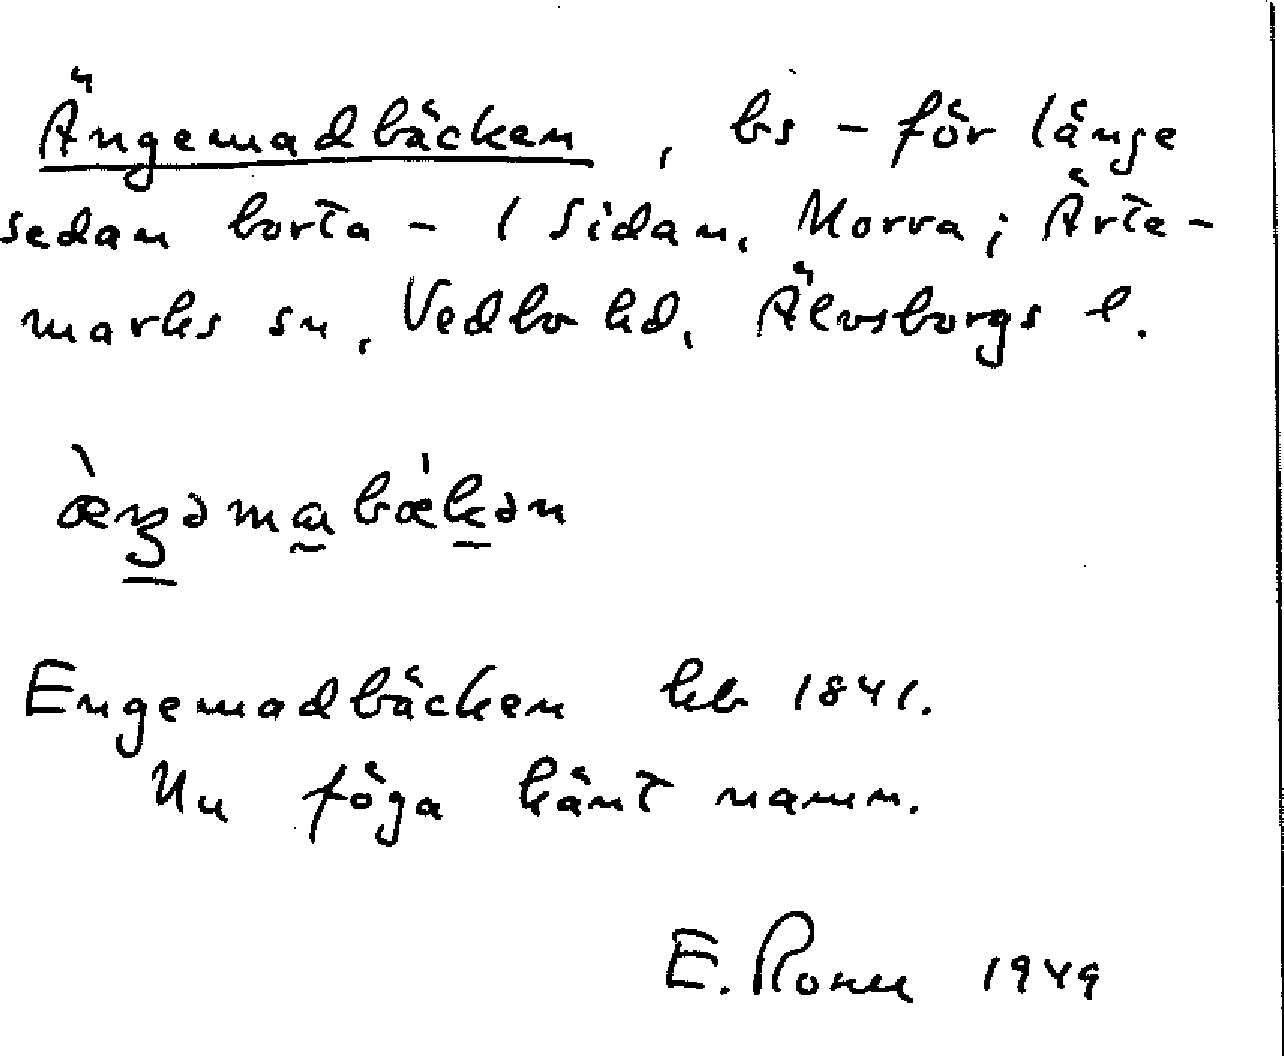 Ängemadbäcken, bs - för länge
sedan borta - / Sidan, Morva; Ärte-
marks sn, Vedbo hd, Älvsborgs l.
Engemadbäcken kb 1841.
Nu föga känt namn.
E. 1949